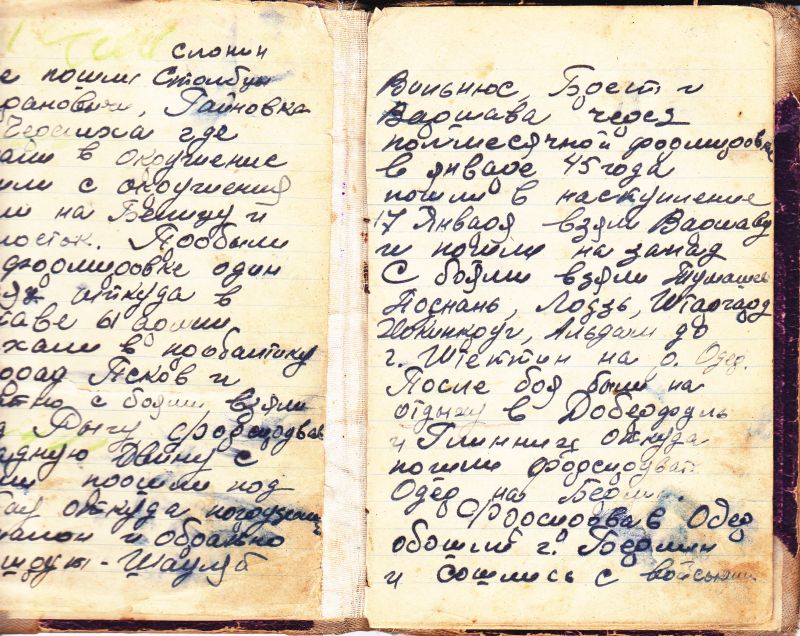 слонин
е пошли Столбцы
рановичи, Гайновка
Черемха где
али в окружение
шли с окружения
ли на Бельцу и
лосток. Пробыли
формировке один
яз откуда в
таве 61 армии
хали в прибалтику
ород Псков и
атно с боями взяли
д Ригу форсировав
адную Двину с
ми прошли под
бау откуда погрузили
шалон и обратно
шрут - Шауляй
Вильнюс, Брест и
Варшава через
полмесячной формировки
в январе 45 года
пошли в наступление
17 Января взяли Варшаву
и пошли на запад
С боями взяли Тумашев
Познань, Лодзь, Штаргард
Альдам до
г. Штеттин на р. Одер.
После боя были на
отдыху в Доберфуль
и Глинниц откуда
пошли форсировать
Одер на Берлин.
Форсировав Одер
обошли г. Берлин
и сошлись с войсками